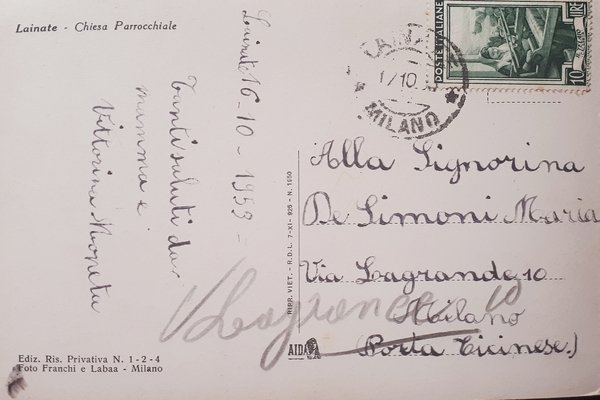 Lainate - Chiesa Parrocchiale
Lainate 16-10-1953-
Tanti saluti da
mamma e
Vittorina
Ediz. Ris. Privativa N. 1-2-4
Foto Franchi e Labaa - Milano
RIPR. VIET. - R.D.L. 7-XI-925 - N. 1950
AIDA
MILANO
17 10
POSTE ITALIANE
10 LIRE
Alla Signorina
De Simoni Maria
Via Lagrande 10
Milano
(Porta Ticinese.)
10